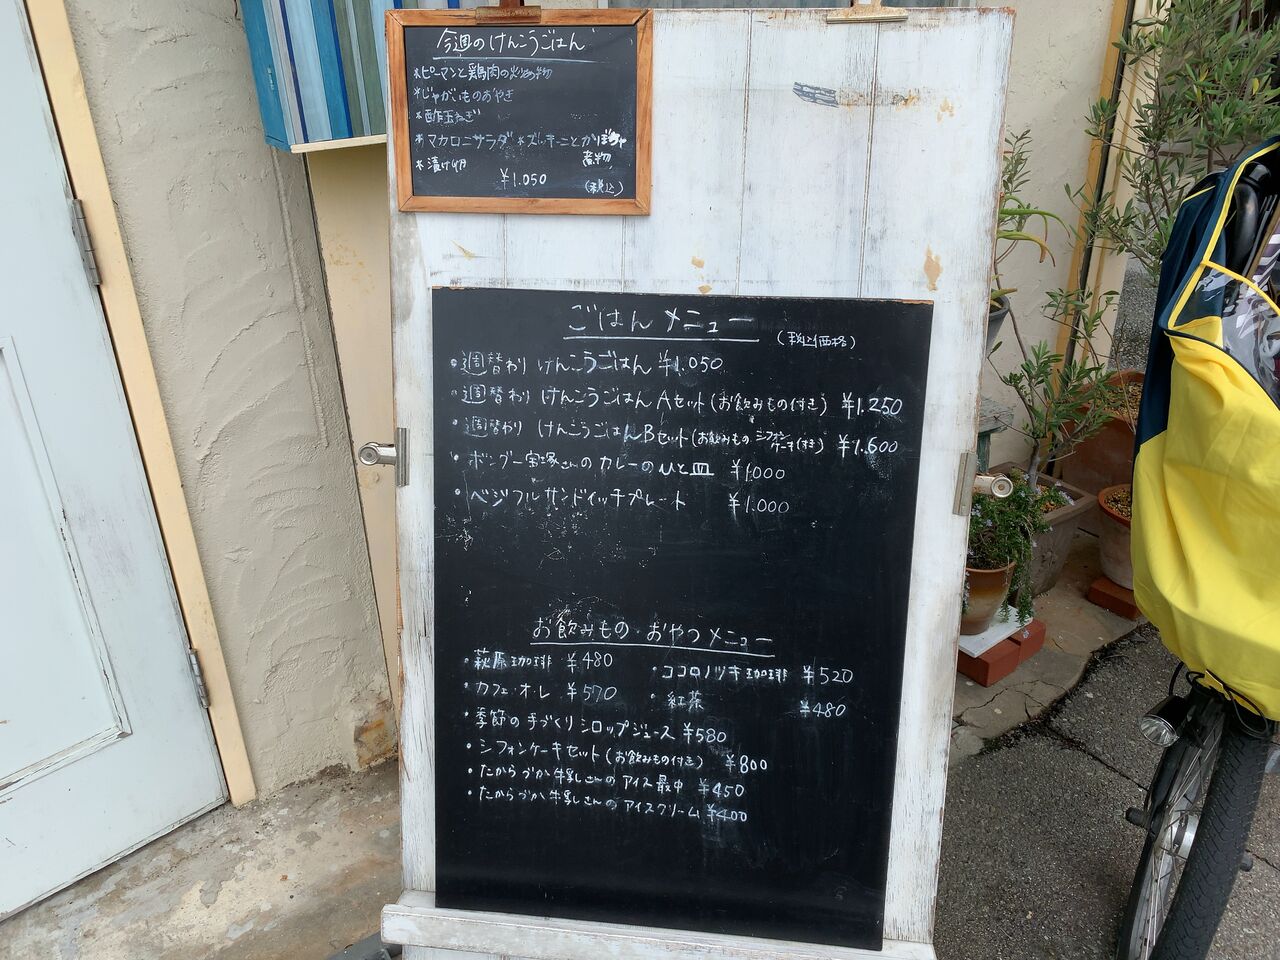 今週のけんこうごはん
*ピーマンと鶏肉の炒め物
*じゃがいものおやき
*酢玉ねぎ
*マカロニサラダ *ズッキーニとかぼちゃ
*漬け卵 煮物
¥1.050 (税込)
ごはんメニュー
(税込価格)
・週替わり けんこうごはん ¥1.050
・週替わり けんこうごはん Aセット(お飲みもの付き) ¥1.250
・週替わり けんこうごはんBセット(お飲みもの シフォンケーキ付き) ¥1.600
・ボングー宝塚さんの カレーのひと皿 ¥1.000
・ベジフルサンドイッチプレート ¥1.000
お飲みもの・おやつメニュー
・萩原珈琲 ¥480 ・ココロノツキ珈琲 ¥520
・カフェ・オ・レ ¥570 ・紅茶 ¥480
・季節の手づくりシロップジュース ¥580
・シフォンケーキセット(お飲みもの付き) ¥800
・たからづか牛乳さんの アイス最中 ¥450
・たからづか牛乳さんの アイスクリーム ¥400